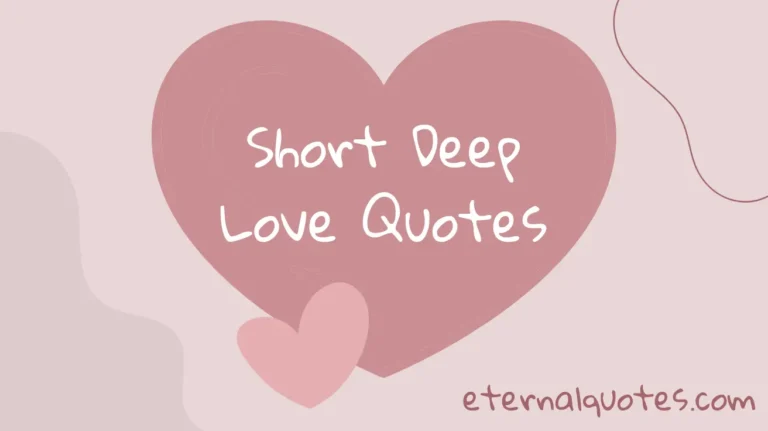 Short Deep
Love Quotes
eternalquotes.com